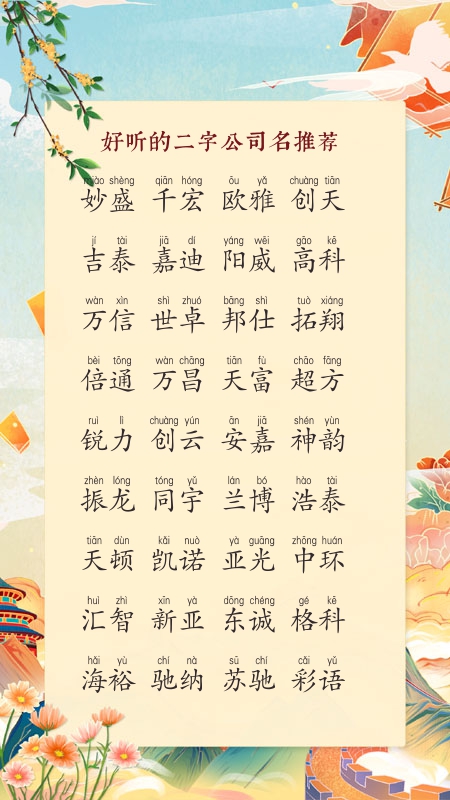 好听的二字公司名推荐
miào shèng qiān hóng ōu yǎ chuàng tiān
妙盛 千宏 欧雅 创天
jí tài jiā dí yáng wēi gāo kē
吉泰 嘉迪 阳威 高科
wàn xìn shì zhuó bāng shì tuò xiáng
万信 世卓 邦仕 拓翔
bèi tōng wàn chāng tiān fù chāo fāng
倍通 万昌 天富 超方
ruì lì chuàng yún ān jiā shén yùn
锐力 创云 安嘉 神韵
zhèn lóng tóng yǔ lán bó hào tài
振龙 同宇 兰博 浩泰
tiān dùn kǎi nuò yà guāng zhōng huán
天顿 凯诺 亚光 中环
huì zhì xīn yà dōng chéng gé kē
汇智 新亚 东诚 格科
hǎi yù chí nà sū chí cǎi yǔ
海裕 驰纳 苏驰 彩语